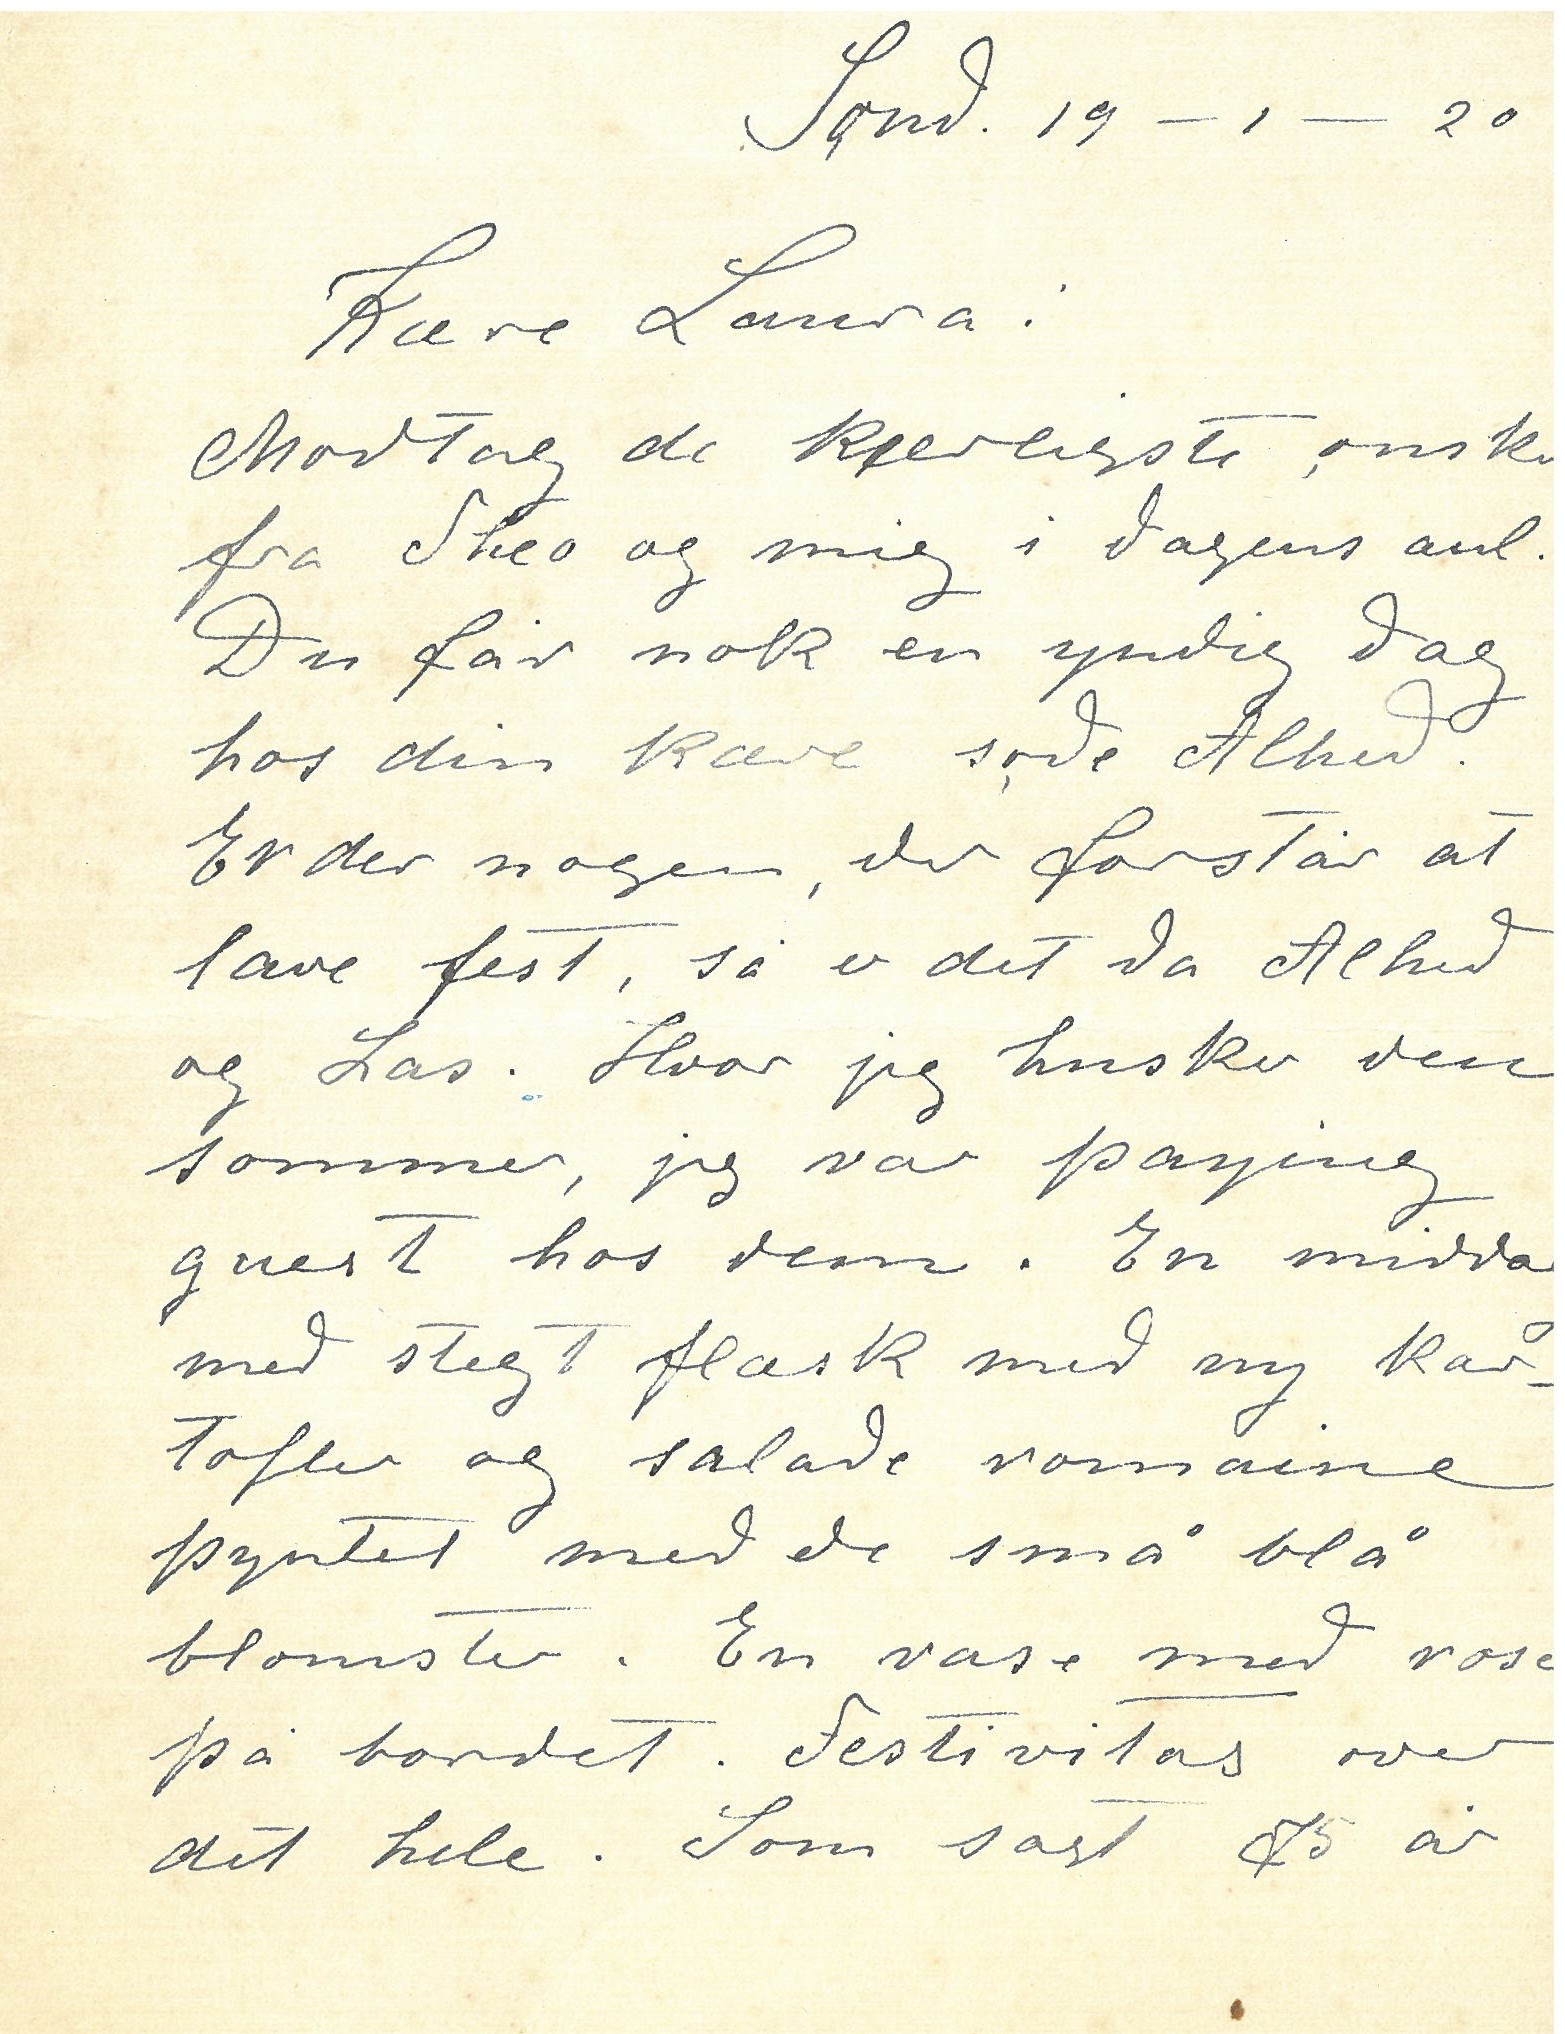 Sønd. 19 - 1 - 20
Kære Laura:
Modtag de kærligste ønske
fra Theo og mig i dagens anl.
Du får nok en yndig dag
hos din kære søde Alhed.
Er der nogen, der forstår at
lave fest, så er det da Alhed
og Las. Hvor jeg husker den
sommer, jeg var paying
guest hos dem. En midda
med stegt flæsk med ny kar-
tofler og salade romaine
pyntet med de små blå
blomster. En vase med rose
på bordet. Festivitas over
det hele. Som sagt 75 år